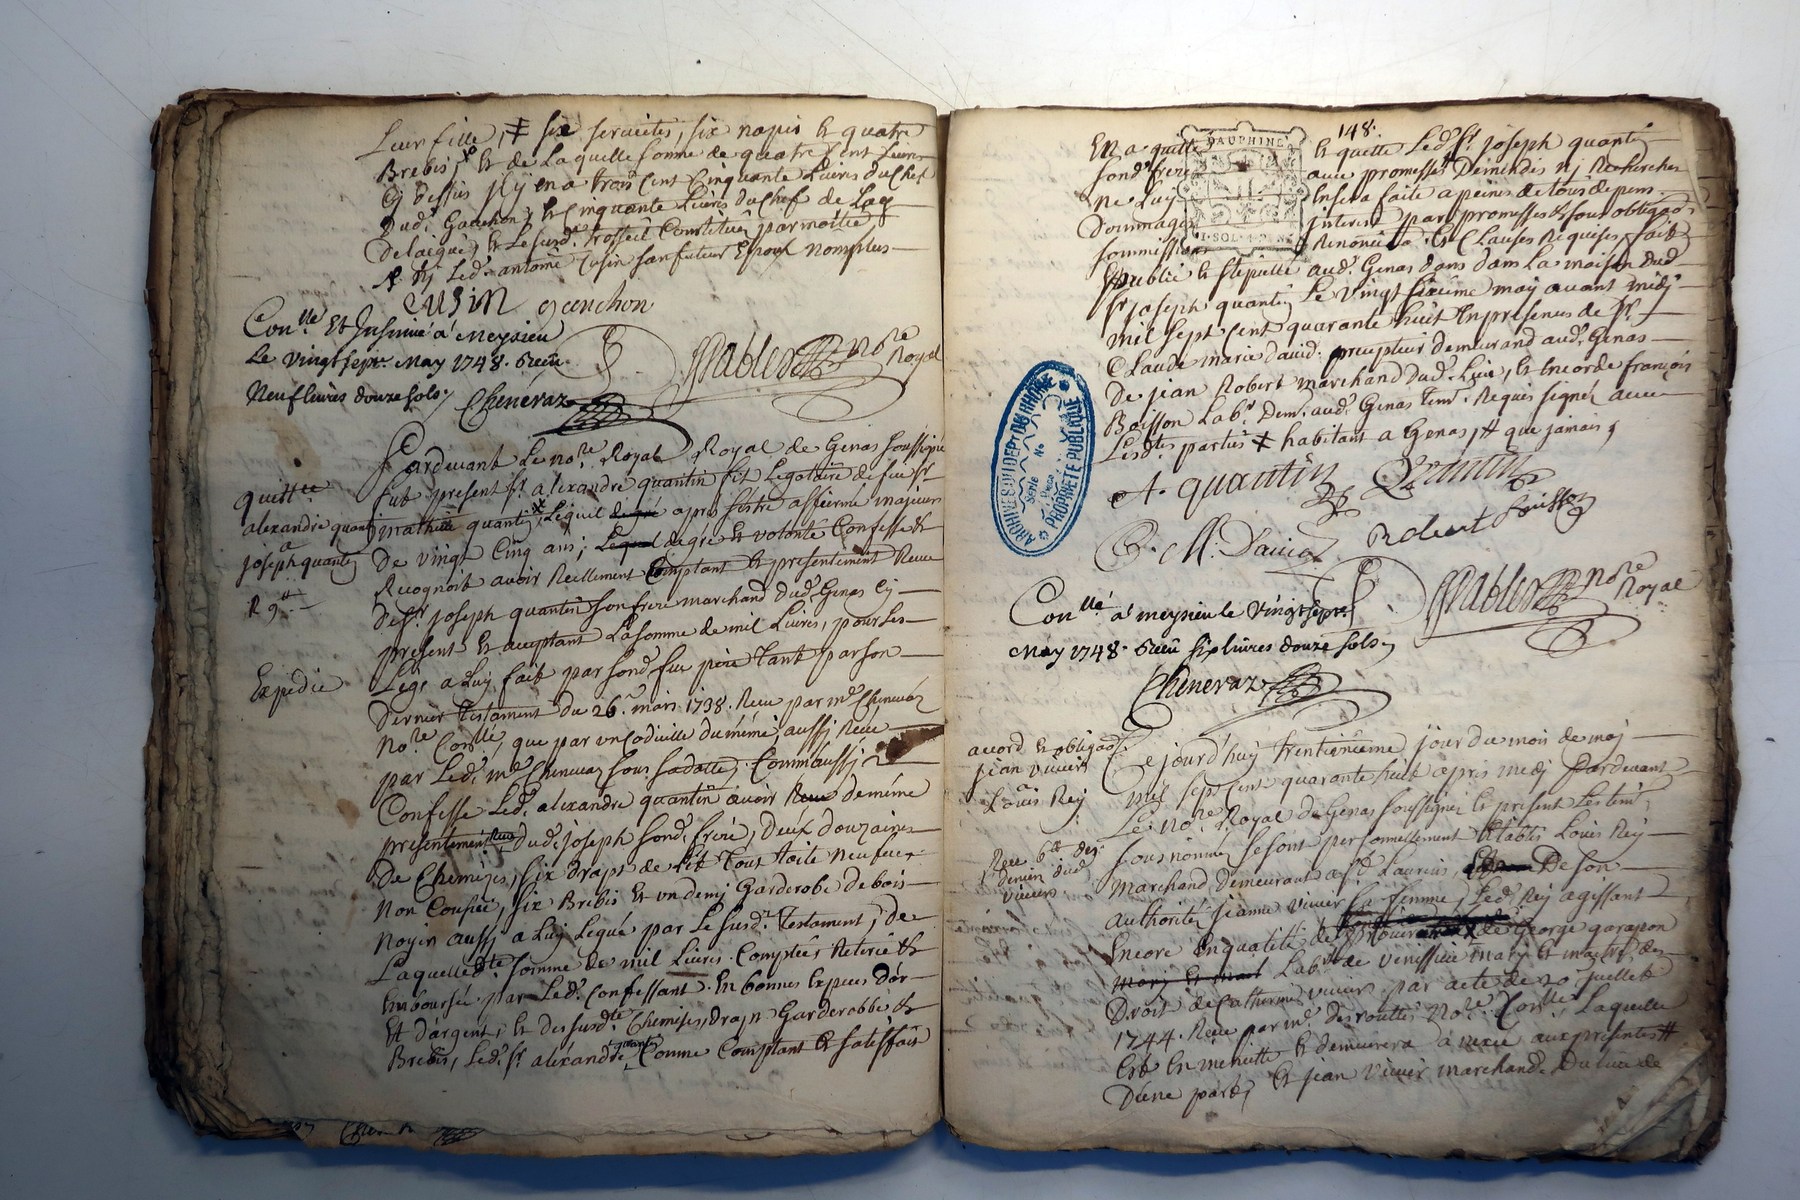 Leur fille, ≠ six serviettes, six napes et quatre
Brebis, et de Laquelle somme de quatre Cent Livres
Cy dessus il y en a trois Cent Cinquante Livres du Chef
dud. Ganchon, et Cinquante Livres du Chef de Lad.
Delaigue, et Le susd. trosseil Constitué par moitié
Led. antoine Cusin son futeur Epoux non plus
CUSIN ganchon
Con.lle Et Insinué à Meysieu
Le vingt sept.e May 1748. Reçu
Neuf livres douze sols, Cheneraz
Pables no.re Royal
Pardevant Le no.re Royal Royal de Genas soussigné
fut present s.r alexandre quantin fils Legataire de feu s.r
mathieu quantin, Lequel de gré apres s'estre affirmé majeur
De vingt Cinq ans; Lequel de gré et volonté Confesse et
Recognoit avoir Reellement Comptant et presentement Receu
De s.r joseph quantin son frere marchand dud. Genas Cy
present et acceptant La somme de mil Livres, pour Les
Legs a Luy fait par sond. feu père tant par son
Dernier testament du 26.e mars 1738. Receu par m.e Cheneraz
No.re Con.llé, que par un Codicille du même, aussi Receu
par Led. m.e Cheneraz sous sa datte, Comm'aussi
Confesse Led. alexandre quantin avoir Receu de même
presentement dud. joseph sond. frere, Deux douzaines
De Chemises, six draps de Lit tous toile neufve
Non Coupée, six Brebis et un demy Garderobe de bois
Noyer aussi a Luy Legué par Le susd. testament, de
Laquelle d.te somme de mil Livres Comptée Retirée et
Emboursée par Led. Confessant En bonnes Especes d'or
Et d'argent, et des susd.tes Chemises, draps Garderobbe et
Brebis, Led. s.r alexandre quantin, Comme Comptant et satisfait
quitt.ce
alexandre quantin
a
joseph quantin
R 9.tt
Expedié
148.
DAUPHINÉ
SOL
En a quitté et quitte Led. s.r joseph quantin
sond. frere avec promesse De
ne Luy faite a peines de tous depens
Dommages interets par promesses et sous obligaõn
soumission Renonciaõn et Clauses Requises, fait
publié et stipullé aud. Genas dans La maison dud.
s.r joseph quantin Le vingt sixieme may avant midy
mil sept Cent quarante huit En presences de s.r
Claude marie david. precepteur demeurand aud. Genas
De jean Robert marchand dud. Lieu, et Encorde françois
Boisson Lab.r Dem.t aud. Genas tem.s Requis signés avec
Lesd.tes parties ≠ habitant a Genas, ≠ que jamais,
A. quantin Quantin
C. M. David Robert Boisson
Pables no.re Royal
ARCHIVES DU DEPT DU RHÔNE
Série
N°
Pièce
PROPRIÉTÉ PUBLIQUE
Con.llé à meysieu le vingt sept.e
May 1748. Reçu six livres douze sols,
Cheneraz
accord et obligaõn
jean vivier
a
Louis Rey
Ce jourd'huy trentieme jour du mois de may
mil sept Cent quarante huit apres midy Pardevant
Le No.re Royal de Genas soussigné Et present Les tem.s
sous nommés se sont personnellement Etablis Louis Rey
Marchand Demeurant a S.t Laurens, De son
authorité jeanne vivier sa femme, Led. Rey agissant
Encore En qualité de de George garapon
Lab.r de venissieu mary et maitre des
Droit de Catherine vivier par acte de 20 juillet
1744. Receu par m.e no.re Con.llé, Laquelle
Est En minutte et demeurera annexée aux presentes ≠
D'une part, Et jean vivier marchand. Du lieu de